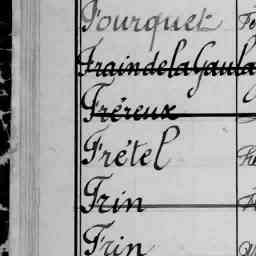 Fourquet
FraindelaGaula
Fréreux
Frétel
Frin
Frin